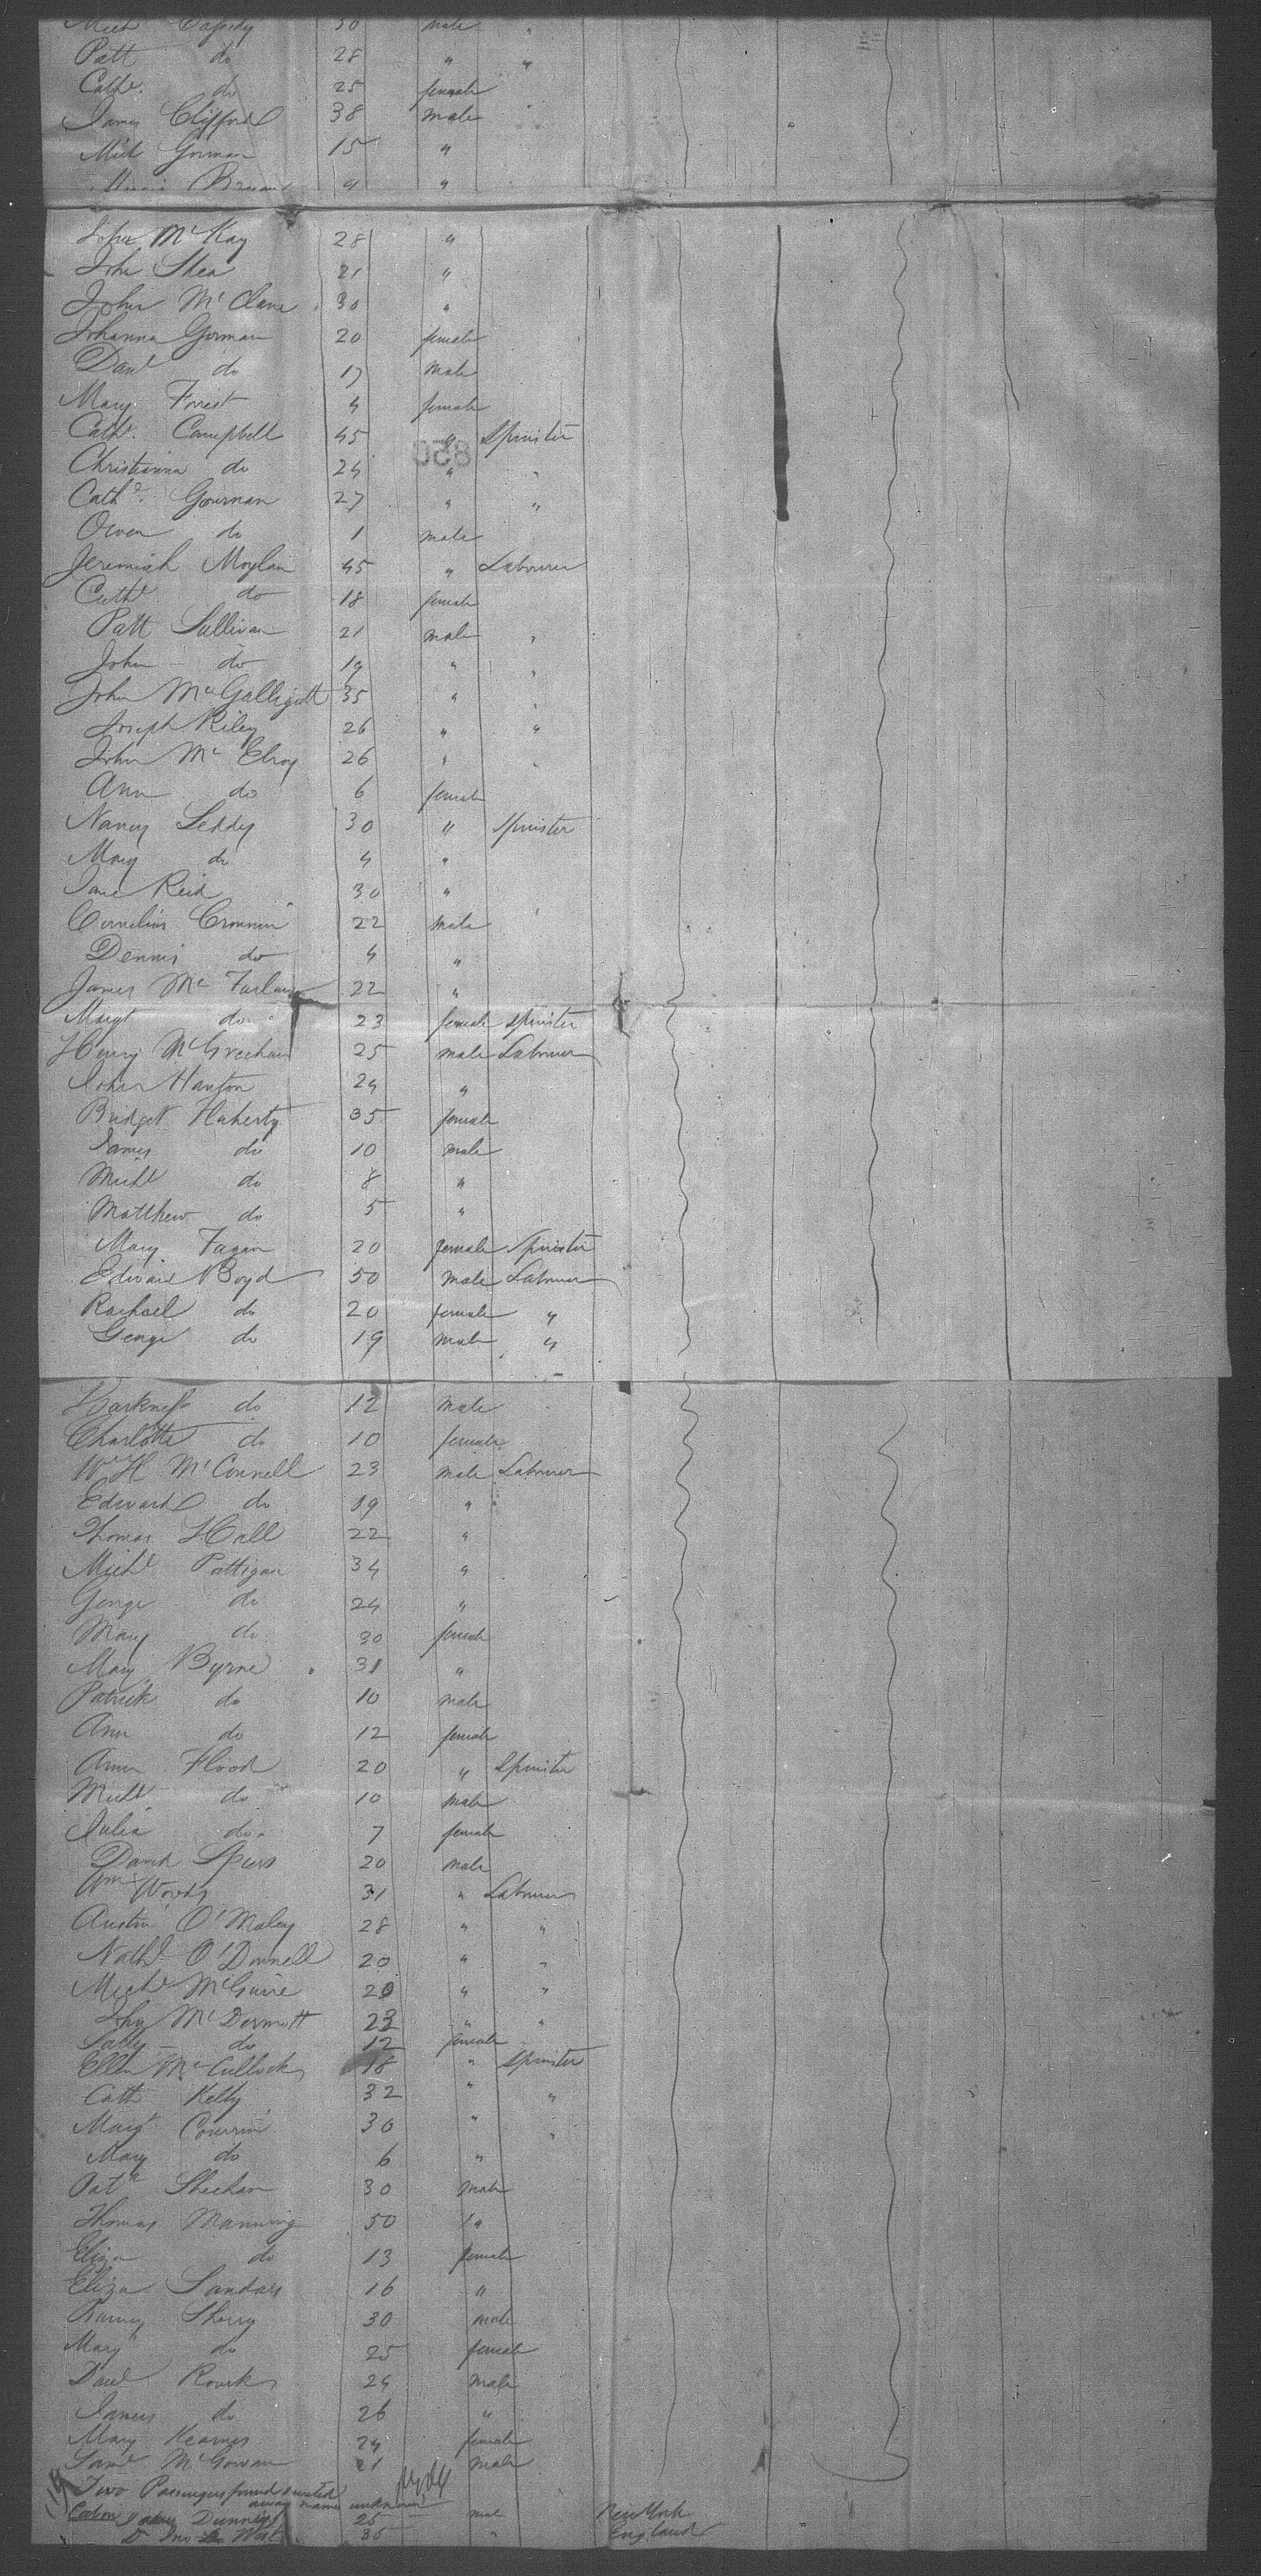 Mich Cassidy 30 male "
Patt do 28 " "
Cath. do 25 female
James Clifford 38 male "
Mich Gorman 15 "
9 "
John McKay 28 "
John Shea 21 "
John McClane 30 "
Johanna Gorman 20 female
Danl do 17 male
Mary Forrest 4 female
Cathe. Campbell 45 " Spinster
850
Christianna do 24 " "
Cathe. Gournan 27 " "
Owen do 1 male
Jeremiah Moylan 45 " Labourer
Cathe do 18 female
Patt Sullivan 21 male "
John do 19 " "
John 35 " "
Joseph Riley 26 " "
John McElroy 26 " "
Ann do 6 female
Nancy Leddy 30 " Spinster
Mary do 4 "
Jane Reid 30 "
Cornelius Cronnin 22 male "
Dennis do 4 "
James McFarlan 22 "
Margt do 23 female Spinster
Henry McGreehan 25 male Labourer
John Hanton 24 "
Bridget Flaherty 35 female
James do 10 male
Michl do 8 "
Matthew do 5 "
Mary Fagan 20 female Spinster
Edward Boyd 50 male Labourer
Rachael do 20 female "
George do 19 male "
Harkness do 12 male
Charlotte do 10 female
Wm H McConnell 23 male Labourer
Edward do 19 "
Thomas Hall 22 "
Michl Pattigan 34 "
George do 24 "
Mary do 30 female
Mary Byrne 31 "
Patrick do 10 male
Ann do 12 female
Ann Flood 20 " Spinster
Michl do 10 male
Julia do 7 female
David Speers 20 male
Wm Woods 31 " Labourer
Austin O'Maley 28 " "
Nathl O'Donnell 20 " "
Michl McGuire 20 " "
McDermott 23 " "
Sally do 12 female
Ellen McCullock 18 " Spinster
Cath Kelly 32 " "
Margt 30 " "
Mary do 6 "
Patk Sheehan 30 male
Thomas Manning 50 "
Eliza do 13 female
Eliza Sandars 16 "
Barney Sherry 30 male
Mary do 25 female
Danl Rourk 24 male
James do 26 "
Mary Kearnes 24 female
Saml McGowan 21 male
Two Passengers found secreted
away names unknown
Cabin Dunning 25 male New York
Do Jno West 35 " England